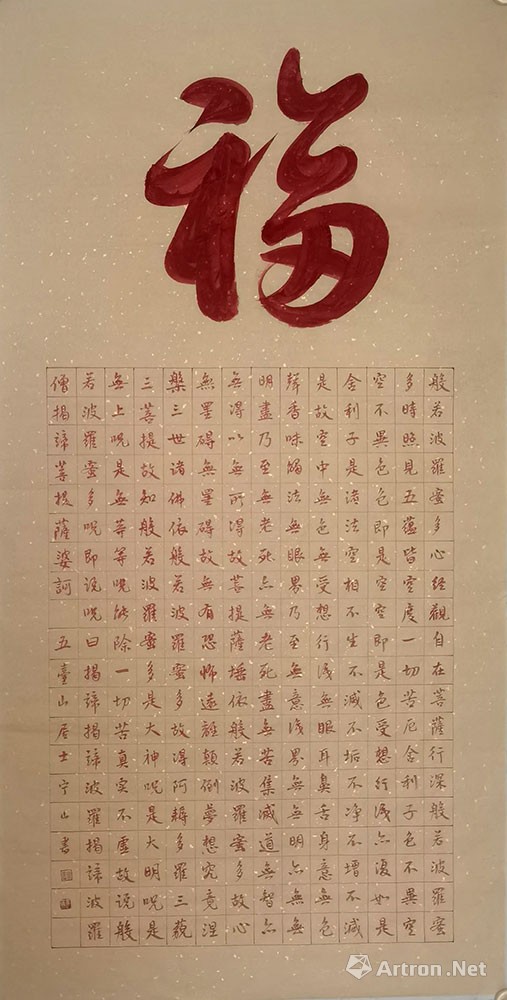 福
般若波羅蜜多心經觀自在菩薩行深般若波羅蜜
多時照見五蘊皆空度一切苦厄舍利子色不異空
空不異色色即是空空即是色受想行識亦復如是
舍利子是諸法空相不生不滅不垢不淨不增不減
是故空中無色無受想行識無眼耳鼻舌身意無色
聲香味觸法無眼界乃至無意識界無無明亦無無
明盡乃至無老死亦無老死盡無苦集滅道無智亦
無得以無所得故菩提薩埵依般若波羅蜜多故心
無罣礙無罣礙故無有恐怖遠離顛倒夢想究竟涅
槃三世諸佛依般若波羅蜜多故得阿耨多羅三藐
三菩提故知般若波羅蜜多是大神呪是大明呪是
無上呪是無等等呪能除一切苦真实不虛故説般
若波羅蜜多呪即説呪曰揭諦揭諦波羅揭諦波羅
僧揭諦菩提薩婆訶 五臺山居士宁山書
Artron.Net